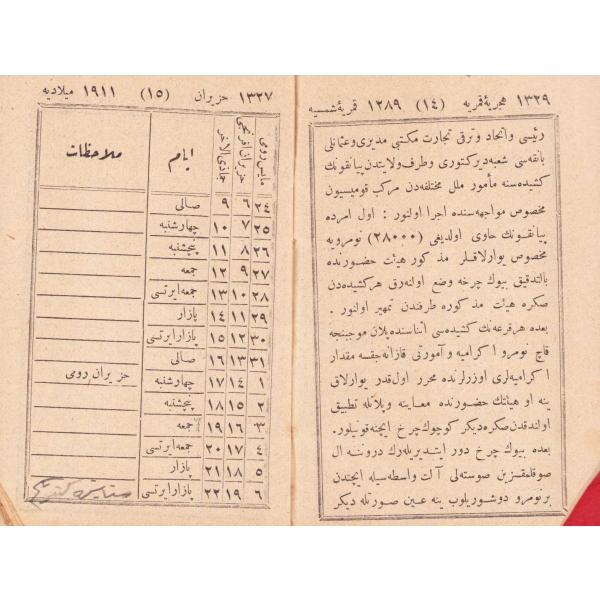 ١٣٢٩ هجریهٔ قمریه (١٤) ١٢٨٩ قمریهٔ شمسیه
رئیسی واتحاد وترقی تجارت مکتبی مدیری وعثمانلی
بانقه‌سی شعبه دیرکتوری وطرف ولایتدن پیانقونك
کشیده‌سنه مأمور ملل مختلفه‌دن مرکب قومیسیون
مخصوص مواجهه‌سنده اجرا اولنور : اول امرده
پیانقونك حاوی اولدیغی (٢٨٠٠٠) نومرویه
مخصوص یوارلاقلر مذکور هیئت حضورنده
بالتدقیق بیوك چرخه وضع اولنه‌رق هرکشیده‌دن
صکره هیئت مذکوره طرفندن تمهیر اولنور .
بعده هرقرعه‌نك کشیده‌سی اثناسنده پلان موجبنجه
قاچ نومرو اکرامیه وآمورتی قازانه‌جقسه مقدار
اکرامیه‌لری اوزرلرنده محرر اول‌قدر یوارلاق
ینه او هیئتك حضورنده معاینه وپلانله تطبیق
اولندقدن صکره دیکر کوچوك چرخ ایچنه قونیلور.
بعده بیوك چرخ دور ایتدیریله‌رك دروننه ال
صوقلمقسزین صوسته‌لی آلت واسطه‌سیله ایچندن
برنومرو دوشوریلوب ینه عین صورتله دیکر
١٣٢٧ حزیران (١٥) ١٩١١ میلادیه
مایس رومی حزیران افرنجی جماذی الآخر ایام ملاحظات
٢٤ ٦ ٩ صالی
٢٥ ٧ ١٠ چهارشنبه
٢٦ ٨ ١١ پنچشنبه
٢٧ ٩ ١٢ جمعه
٢٨ ١٠ ١٣ جمعه‌ایرتسی
٢٩ ١١ ١٤ پازار
٣٠ ١٢ ١٥ پازارایرتسی
٣١ ١٣ ١٦ صالی
١ ١٤ ١٧ چهارشنبه حزیران رومی
٢ ١٥ ١٨ پنچشنبه
٣ ١٦ ١٩ جمعه
٤ ١٧ ٢٠ جمعه‌ایرتسی
٥ ١٨ ٢١ پازار
٦ ١٩ ٢٢ پازارایرتسی